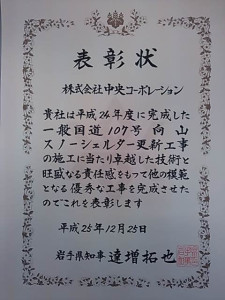 表彰状
株式会社中央コーポレーション
貴社は平成24年度に完成した
一般国道107号向山
スノーシェルター更新工事
の施工に当たり卓越した技術と
旺盛な責任感をもって他の模範
となる優秀な工事を完成させた
のでこれを表彰します
平成25年12月25日
岩手県知事 達増拓也